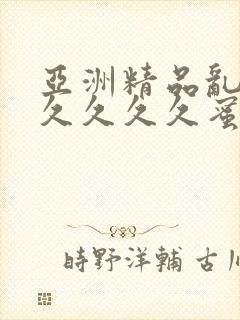 亞洲精品亂
久久久久蜜
時野洋輔 古川